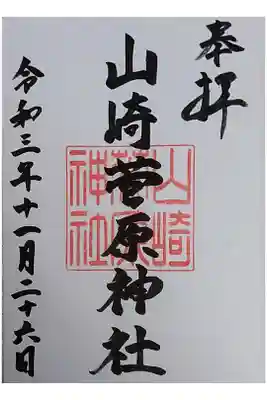 奉拝
山崎菅原神社
山崎菅原神社
令和三年十一月二十六日